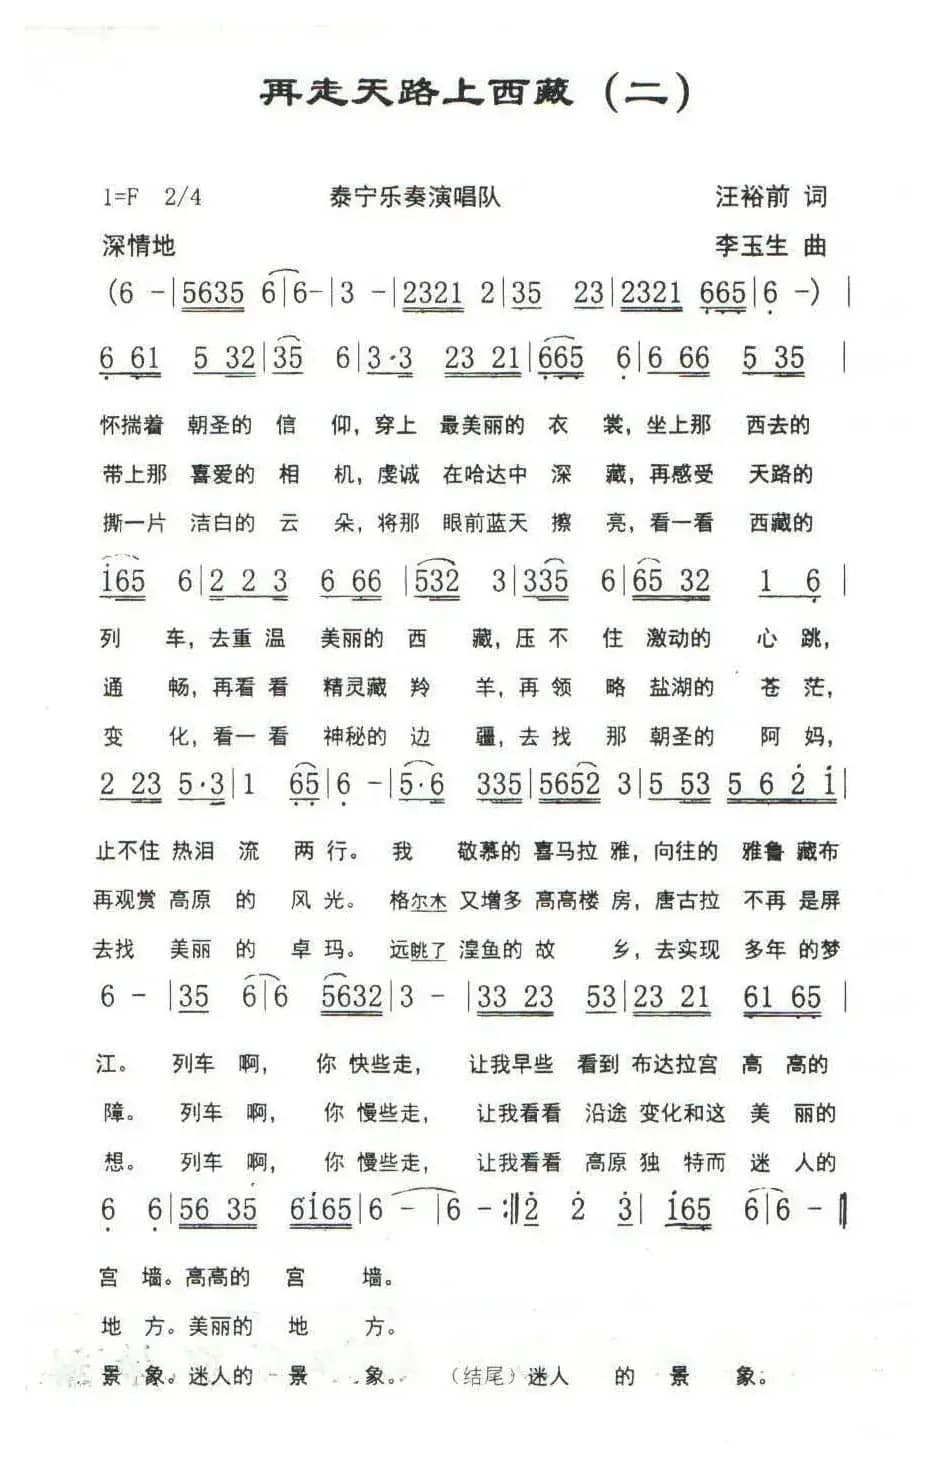 再走天路上西藏（二）
1=F 2/4 泰宁乐奏演唱队 汪裕前 词
深情地 李玉生 曲
(6 -|5635 6|6-|3 -|2321 2|35 23|2321 665|6 -)|
6 61 5 32|35 6|3·3 23 21|665 6|6 66 5 35|
怀揣着 朝圣的 信 仰，穿上 最美丽的 衣 裳，坐上那 西去的
带上那 喜爱的 相 机，虔诚 在哈达中 深 藏，再感受 天路的
撕一片 洁白的 云 朵，将那 眼前蓝天 擦 亮，看一看 西藏的
i65 6|2 2 3 6 66|532 3|335 6|65 32 1 6|
列 车，去重温 美丽的 西 藏，压不 住 激动的 心 跳，
通 畅，再看看 精灵藏 羚 羊，再领 略 盐湖的 苍 茫，
变 化，看一看 神秘的 边 疆，去找 那 朝圣的 阿 妈，
2 23 5·3|1 65|6 -|5·6 335|5652 3|5 53 5 6 2 i|
止不住 热泪 流 两 行。 我 敬慕的 喜马拉 雅，向往的 雅鲁 藏布
再观赏 高原 的 风 光。 格尔木 又增多 高高楼 房，唐古拉 不再 是屏
去找 美丽 的 卓 玛。 远眺了 湟鱼的 故 乡，去实现 多年 的梦
6 - |35 6|6 5632|3 - |33 23 53|23 21 61 65|
江。 列车 啊， 你 快些走， 让我早些 看到 布达拉宫 高 高的
障。 列车 啊， 你 慢些走， 让我看看 沿途 变化和这 美 丽的
想。 列车 啊， 你 慢些走， 让我看看 高原 独 特而 迷 人的
6 6|56 35 6i65|6 - |6 -:‖2 2 3|i65 6|6 -‖
宫 墙。高高的 宫 墙。
地 方。美丽的 地 方。
景 象。迷人的 景 象。 （结尾）迷人 的 景 象。